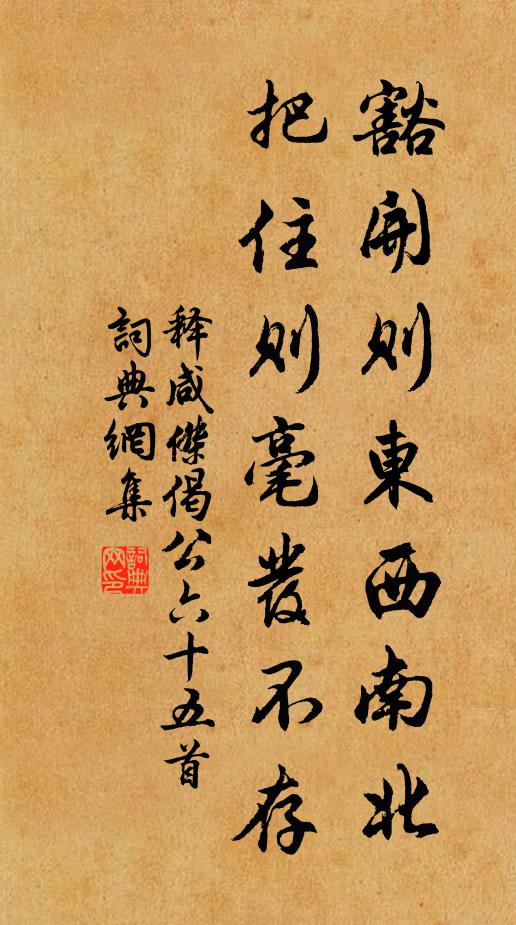 豁開則東西南北
把住則毫發不存
释咸傑偈公六十五首
詞典網集
詞典網印